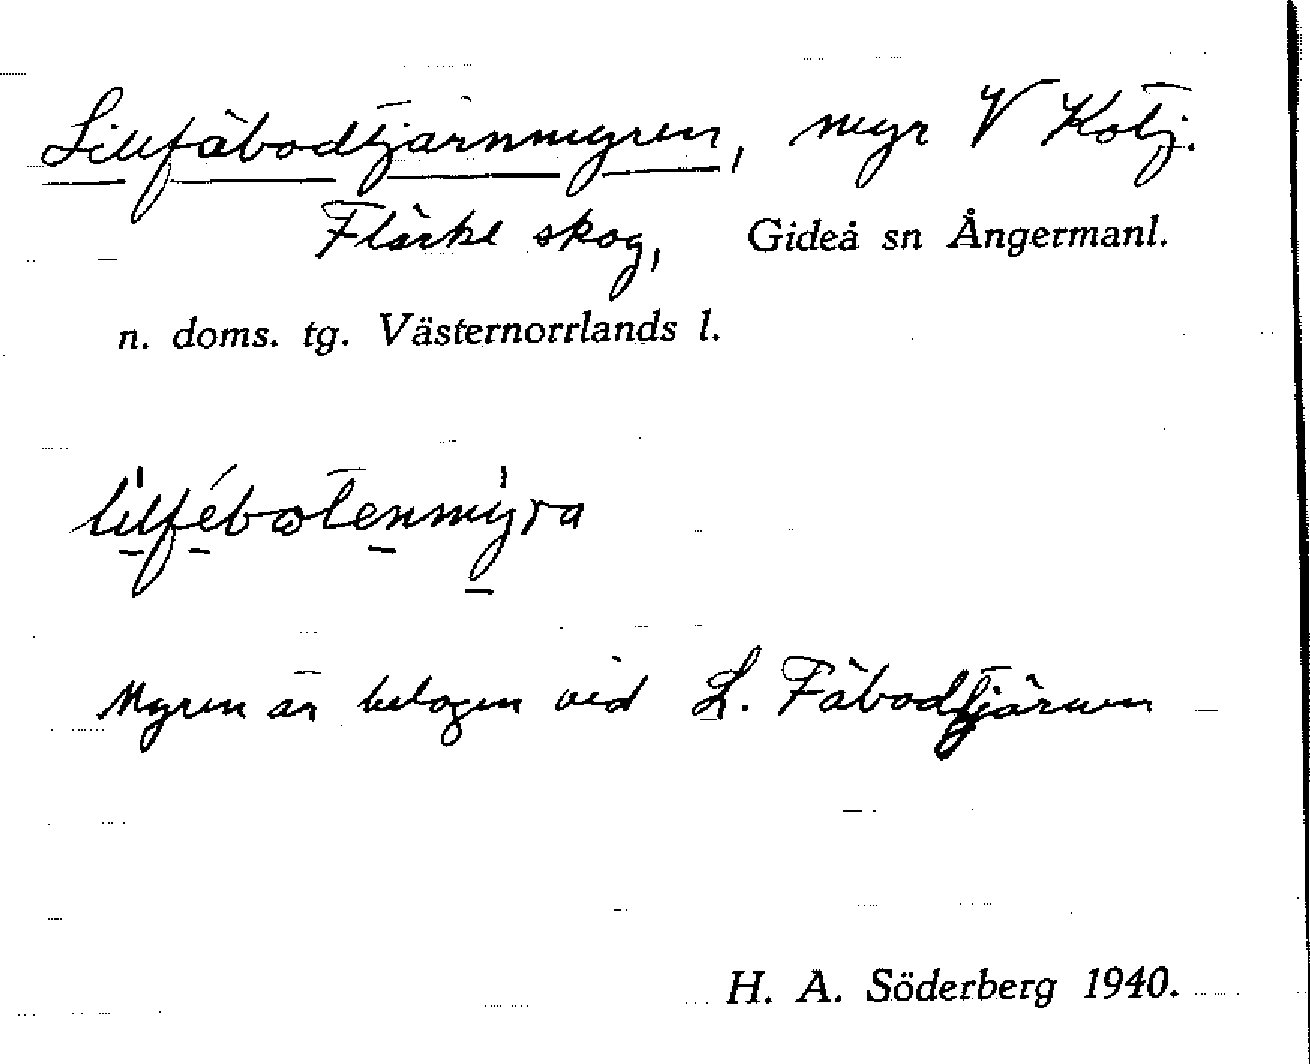 Lillfäbodtjärnmyren, myr V Kotj.
Flärke skog, Gideå sn Ångermanl.
n. doms. tg. Västernorrlands l.
lilfébotenmyra
Myren är belägen vid L. Fäbodtjärnen
H. A. Söderberg 1940.